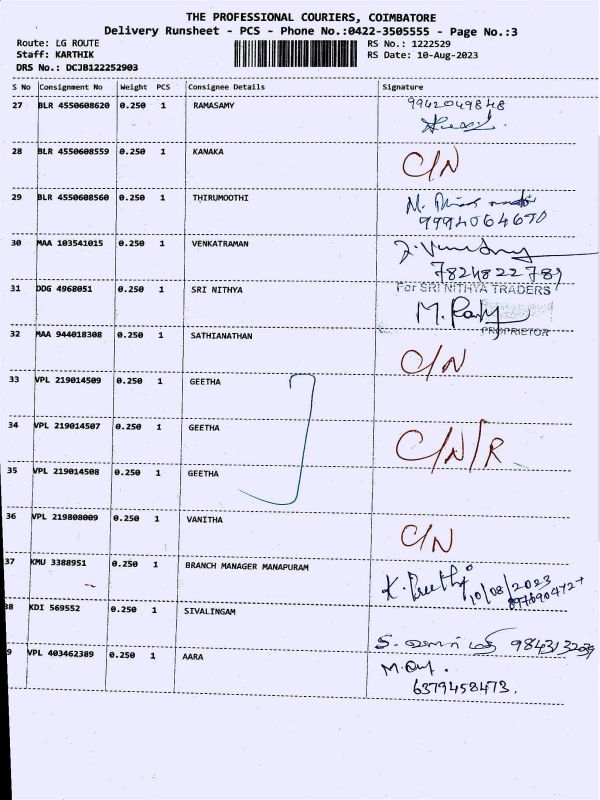 THE PROFESSIONAL COURIERS, COIMBATORE
Delivery Runsheet - PCS - Phone No.:0422-3505555 - Page No.:3
Route: LG ROUTE RS No.: 1222529
Staff: KARTHIK RS Date: 10-Aug-2023
DRS No.: DCJB122252903
S No Consignment No Weight PCS Consignee Details Signature
27 BLR 4550608620 0.250 1 RAMASAMY 9942049848
28 BLR 4550608559 0.250 1 KANAKA C/N
29 BLR 4550608560 0.250 1 THIRUMOOTHI M.
9994064670
30 MAA 103541015 0.250 1 VENKATRAMAN
7824822789
31 DDG 4968051 0.250 1 SRI NITHYA For SRI NITHYA TRADERS
M.
PROPRIETOR
32 MAA 944018308 0.250 1 SATHIANATHAN C/N
33 VPL 219014509 0.250 1 GEETHA
34 VPL 219014507 0.250 1 GEETHA C/N/R
35 VPL 219014508 0.250 1 GEETHA
36 VPL 219808009 0.250 1 VANITHA C/N
37 KMU 3388951 0.250 1 BRANCH MANAGER MANAPURAM K. Preethi 10/08/2023
38 KDI 569552 0.250 1 SIVALINGAM
S. 
9 VPL 403462389 0.250 1 AARA M.
6379458473.